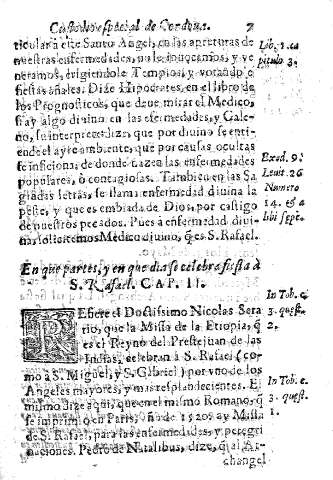 Custodio especial de Cordoua. 7
ticular à este Santo Angel, en las apreturas de
nuestras enfermedades, no le inuocamos, y ve
neramos, erigiendole Templos, y votando
fiestas anales. Dize Hipocrates, en el libro de
los Pronosticos, que deue mirar el Medico,
si ay algo diuino en las enfermedades, y Gale-
no, su interprete dize, que por diuino se enti-
ende el ayre ambiente, que por causas ocultas
se inficiona, de donde nazen las enfermedades
populares, ò contagiosas. Tambien en las Sa
gradas letras, se llama enfermedad diuina la
peste, y que es embiada de Dios, por castigo
de nuestros pecados. Pues à enfermedad diui-
na, solicitemos Medico diuino, q̃ es S. Rafael.
Lib. 1. ca
pitulo 3.
Exod. 9.
Leuit. 26
Numero
14. & a
libi sepe.
En que partes, y en que dia se celebra fiesta à
S. Rafael. CAP. II.
REfiere el Doctissimo Nicolas Sera
rio, que la Missa de la Etiopia, q̃
es el Reyno del Prestejuan de las
Indias, celebran à S. Rafael (co-
mo à S. Miguel, y S. Gabriel) por vno de los
Angeles mayores, y mas resplandecientes. El
mismo dize aqui, que en el mismo Romano, q̃
se imprimiò en Paris, año de 1520. ay Missa
de S. Rafael, para las enfermedades, y peregri
naciones. Pedro de Natalibus, dize, q̃ al Ar-
changel
In Tob. c.
3. quest.
2.
In Tob. c.
3. quest.
1.